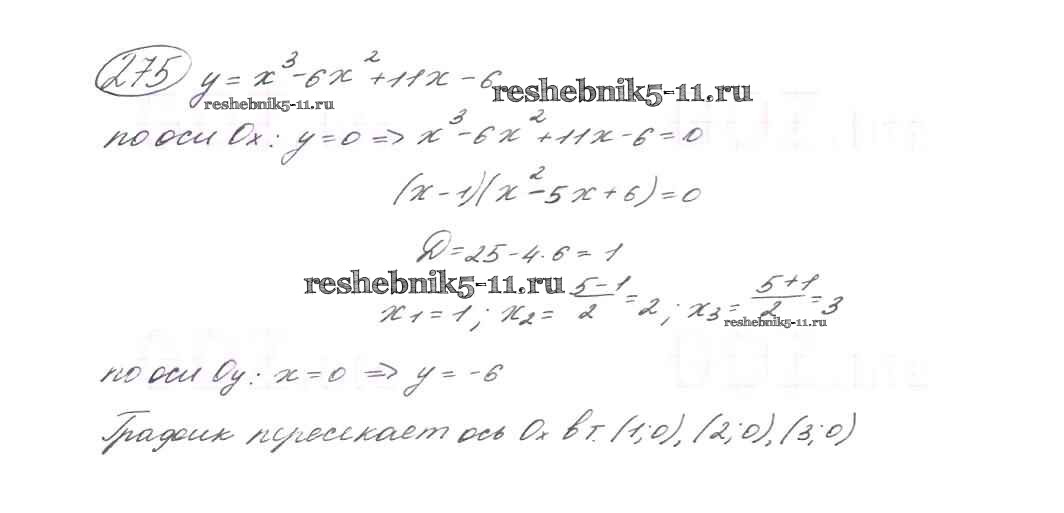 275 y = x³ - 6x² + 11x - 6
reshebnik5-11.ru
reshebnik5-11.ru
по оси Ox: y = 0 => x³ - 6x² + 11x - 6 = 0
(x - 1)(x² - 5x + 6) = 0
D = 25 - 4·6 = 1
reshebnik5-11.ru
x₁ = 1; x₂ = (5-1)/2 = 2; x₃ = (5+1)/2 = 3
reshebnik5-11.ru
по оси Oy: x = 0 => y = -6
График пересекает ось Ox в т. (1;0), (2;0), (3;0)